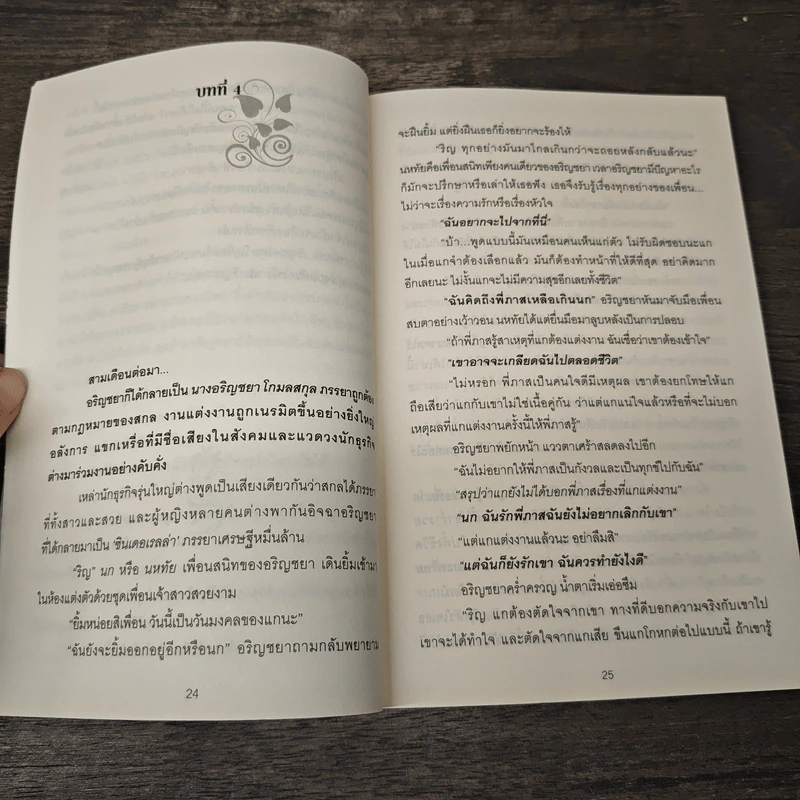 บทที่ 4
สามเดือนต่อมา...
อริญชยาก็ได้กลายเป็น นางอริญชยา โกมลสกุล ภรรยาถูกต้อง
ตามกฎหมายของสกล งานแต่งงานถูกเนรมิตขึ้นอย่างยิ่งใหญ่
อลังการ แขกเหรื่อที่มีชื่อเสียงในสังคมและแวดวงนักธุรกิจ
ต่างมาร่วมงานอย่างคับคั่ง
เหล่านักธุรกิจรุ่นใหญ่ต่างพูดเป็นเสียงเดียวกันว่าสกลได้ภรรยา
ที่ทั้งสาวและสวย และผู้หญิงหลายคนต่างพากันอิจฉาอริญชยา
ที่ได้กลายมาเป็น 'ซินเดอเรลล่า' ภรรยาเศรษฐีหมื่นล้าน
"ริญ" นก หรือ นหทัย เพื่อนสนิทของอริญชยา เดินยิ้มเข้ามา
ในห้องแต่งตัวด้วยชุดเพื่อนเจ้าสาวสวยงาม
"ยิ้มหน่อยสิเพื่อน วันนี้เป็นวันมงคลของแกนะ"
"ฉันยังจะยิ้มออกอยู่อีกหรือนก" อริญชยาถามกลับพยายาม
24
จะฝืนยิ้ม แต่ยิ่งฝืนเธอก็ยิ่งอยากจะร้องไห้
"ริญ ทุกอย่างมันมาไกลเกินกว่าจะถอยหลังกลับแล้วนะ"
นหทัยคือเพื่อนสนิทเพียงคนเดียวของอริญชยา เวลาอริญชยามีปัญหาอะไร
ก็มักจะปรึกษาหรือเล่าให้เธอฟัง เธอจึงรับรู้เรื่องทุกอย่างของเพื่อน...
ไม่ว่าจะเรื่องความรักหรือเรื่องหัวใจ
"ฉันอยากจะไปจากที่นี่"
"บ้า...พูดแบบนี้มันเหมือนคนเห็นแก่ตัว ไม่รับผิดชอบนะแก
ในเมื่อแกจำต้องเลือกแล้ว มันก็ต้องทำหน้าที่ให้ดีที่สุด อย่าคิดมาก
อีกเลยนะ ไม่งั้นแกจะไม่มีความสุขอีกเลยทั้งชีวิต"
"ฉันคิดถึงพี่ภาสเหลือเกินนก" อริญชยาหันมาจับมือเพื่อน
สบตาอย่างเว้าวอน นหทัยได้แต่ยื่นมือมาลูบหลังเป็นการปลอบ
"ถ้าพี่ภาสรู้สาเหตุที่แกต้องแต่งงาน ฉันเชื่อว่าเขาต้องเข้าใจ"
"เขาอาจจะเกลียดฉันไปตลอดชีวิต"
"ไม่หรอก พี่ภาสเป็นคนใจดีมีเหตุผล เขาต้องยกโทษให้แก
ถือเสียว่าแกกับเขาไม่ใช่เนื้อคู่กัน ว่าแต่แกแน่ใจแล้วหรือที่จะไม่บอก
เหตุผลที่แกแต่งงานครั้งนี้ให้พี่ภาสรู้"
อริญชยาพยักหน้า แววตาเศร้าสลดลงไปอีก
"ฉันไม่อยากให้พี่ภาสเป็นกังวลและเป็นทุกข์ไปกับฉัน"
"สรุปว่าแกยังไม่ได้บอกพี่ภาสเรื่องที่แกแต่งงาน"
"นก ฉันรักพี่ภาสฉันยังไม่อยากเลิกกับเขา"
"แต่แกแต่งงานแล้วนะ อย่าลืมสิ"
"แต่ฉันก็ยังรักเขา ฉันควรทำยังไงดี"
อริญชยาคร่ำครวญ น้ำตาเริ่มเอ่อซึม
"ริญ แกต้องตัดใจจากเขา ทางที่ดีบอกความจริงกับเขาไป
เขาจะได้ทำใจ และตัดใจจากแกเสีย ขืนแกโกหกต่อไปแบบนี้ ถ้าเขารู้
25